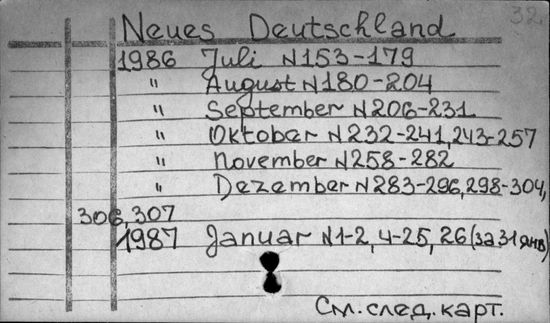 32
Neues Deutschland
1986 Juli N153-179
" August N180-204
" September N206-231
" Oktober N232-241,243-257
" November N258-282
" Dezember N283-296,298-304,
306,307
1987 Januar N1-2,4-25,26(за 31 янв)
См. след. карт.